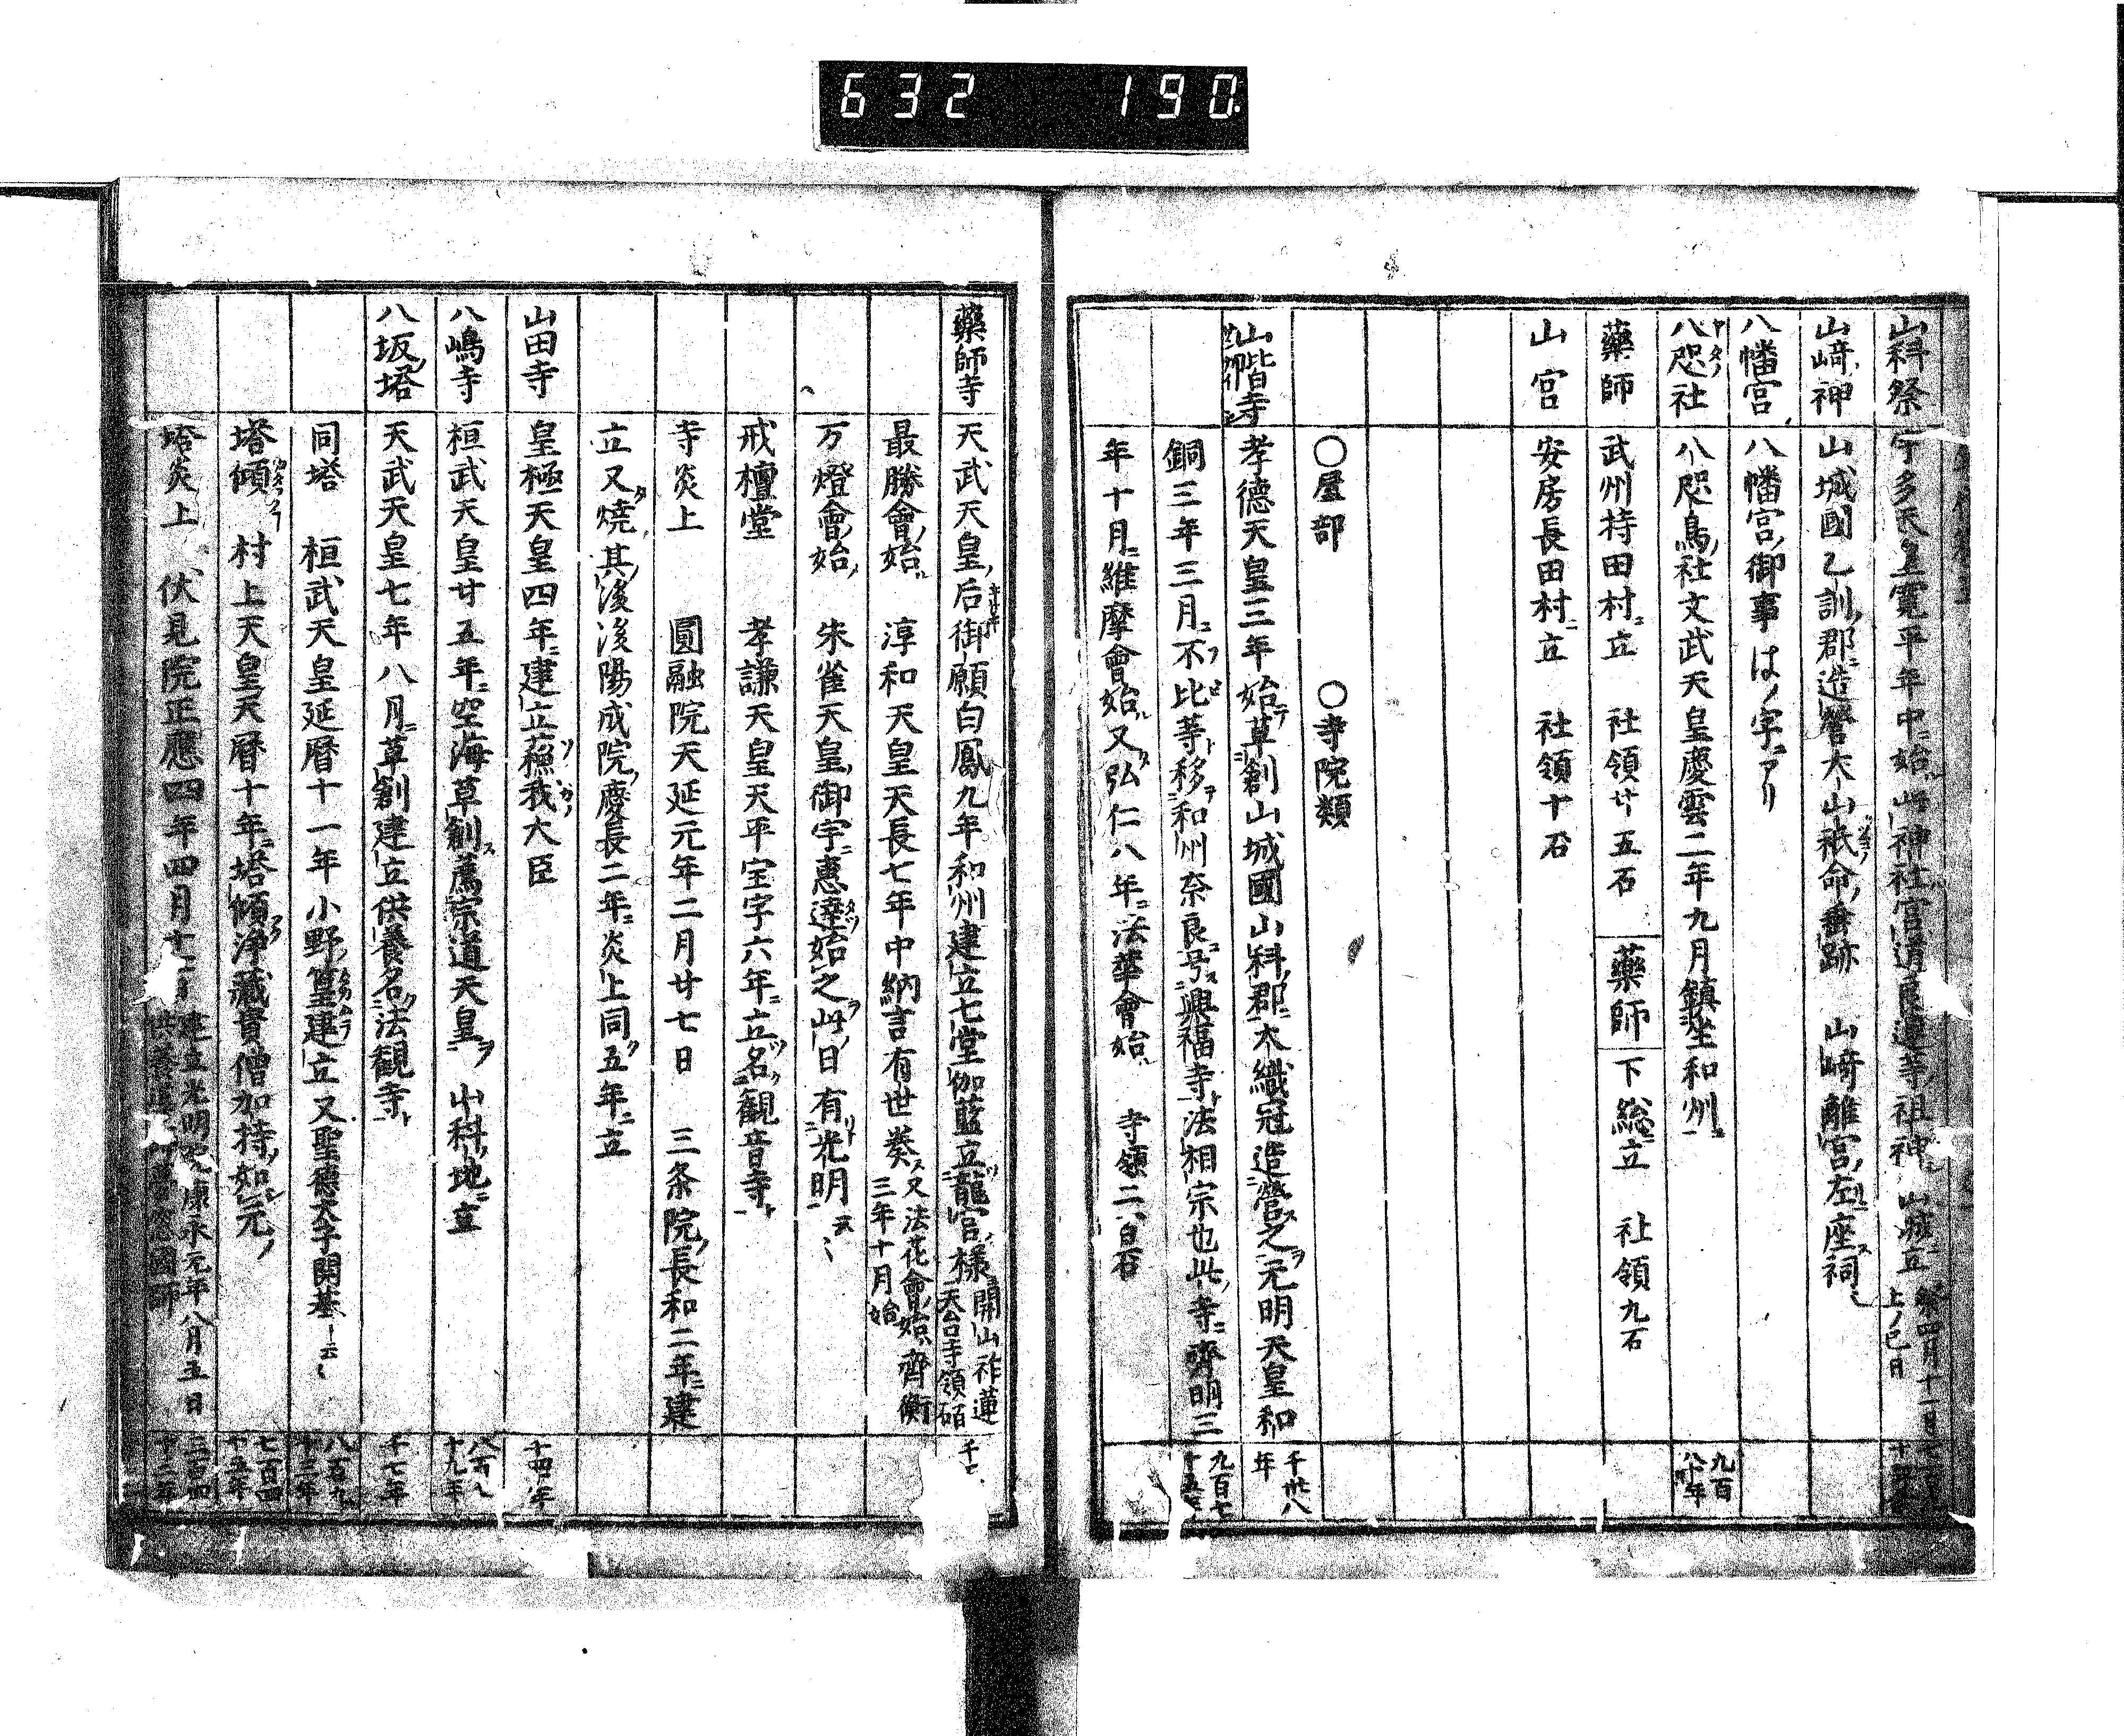 632 190
山科祭 宇多天皇寛平年中ニ始ル此神社官道良連等ノ祖神 山城ニ立 祭四月十一日 上ノ巳日
山﨑神 山城國乙訓ノ郡ニ造営大山祇命ノ垂跡 山﨑離宮ノ左ニ座ス祠
八幡宮 八幡宮ノ御事はノ字ニアリ
八咫社 八咫烏ノ社文武天皇慶雲二年九月鎮坐和州ニ 九百八十年
藥師 武州持田村ニ立 社領廿五石 藥師 下総ニ立 社領九石
山宮 安房長田村ニ立 社領十石
○屋部 ○寺院類
山階寺 孝徳天皇三年始テ草創山城國山科ノ郡ニ大織冠造営ス之ヲ元明天皇和 千卅八年
銅三年三月ニ不比等移ヲ和州奈良ニ号ス興福寺ト法相宗也此ノ寺ニ齊明三 九百七十五年
年十月ニ維摩會始ル又弘仁八年ニ法華會始ル 寺領二百石
藥師寺 天武天皇ノ后御願白鳳九年和州建立七堂伽藍立龍宮ノ様 開山祚蓮 天台寺領
最勝會ノ始ル 淳和天皇天長七年中納言有世奏ス又法花會ノ始 齊衡三年十月始
万燈會ノ始ル 朱雀天皇ノ御宇ニ惠達始ム之ヲ此ノ日有光明云〻
戒檀堂 孝謙天皇天平宝字六年ニ立名ク観音寺ト
寺炎上 圓融院天延元年二月廿七日 三条院ノ長和二年ニ建
立又焼其ノ後後陽成院ノ慶長二年ニ炎上同ク五年ニ立
山田寺 皇極天皇四年ニ建立蘓我ノ大臣 千四十年
八嶋寺 桓武天皇廿五年ニ空海草創ス為崇道天皇ノ 山科ノ地ニ立 八百八十九年
八坂ノ塔 天武天皇七年八月ニ草創建立供養名ク法観寺ト 千七年
同塔 桓武天皇延暦十一年小野ノ篁建立又聖徳太子開基ト云〻 八百九十三年
塔傾 村上天皇天暦十年ニ塔傾ク浄藏貴僧加持ノ如シ元ノ 七百四十五年
塔炎上 伏見院正應四年四月十 建立光明院康永元年八月五日 供養 國師